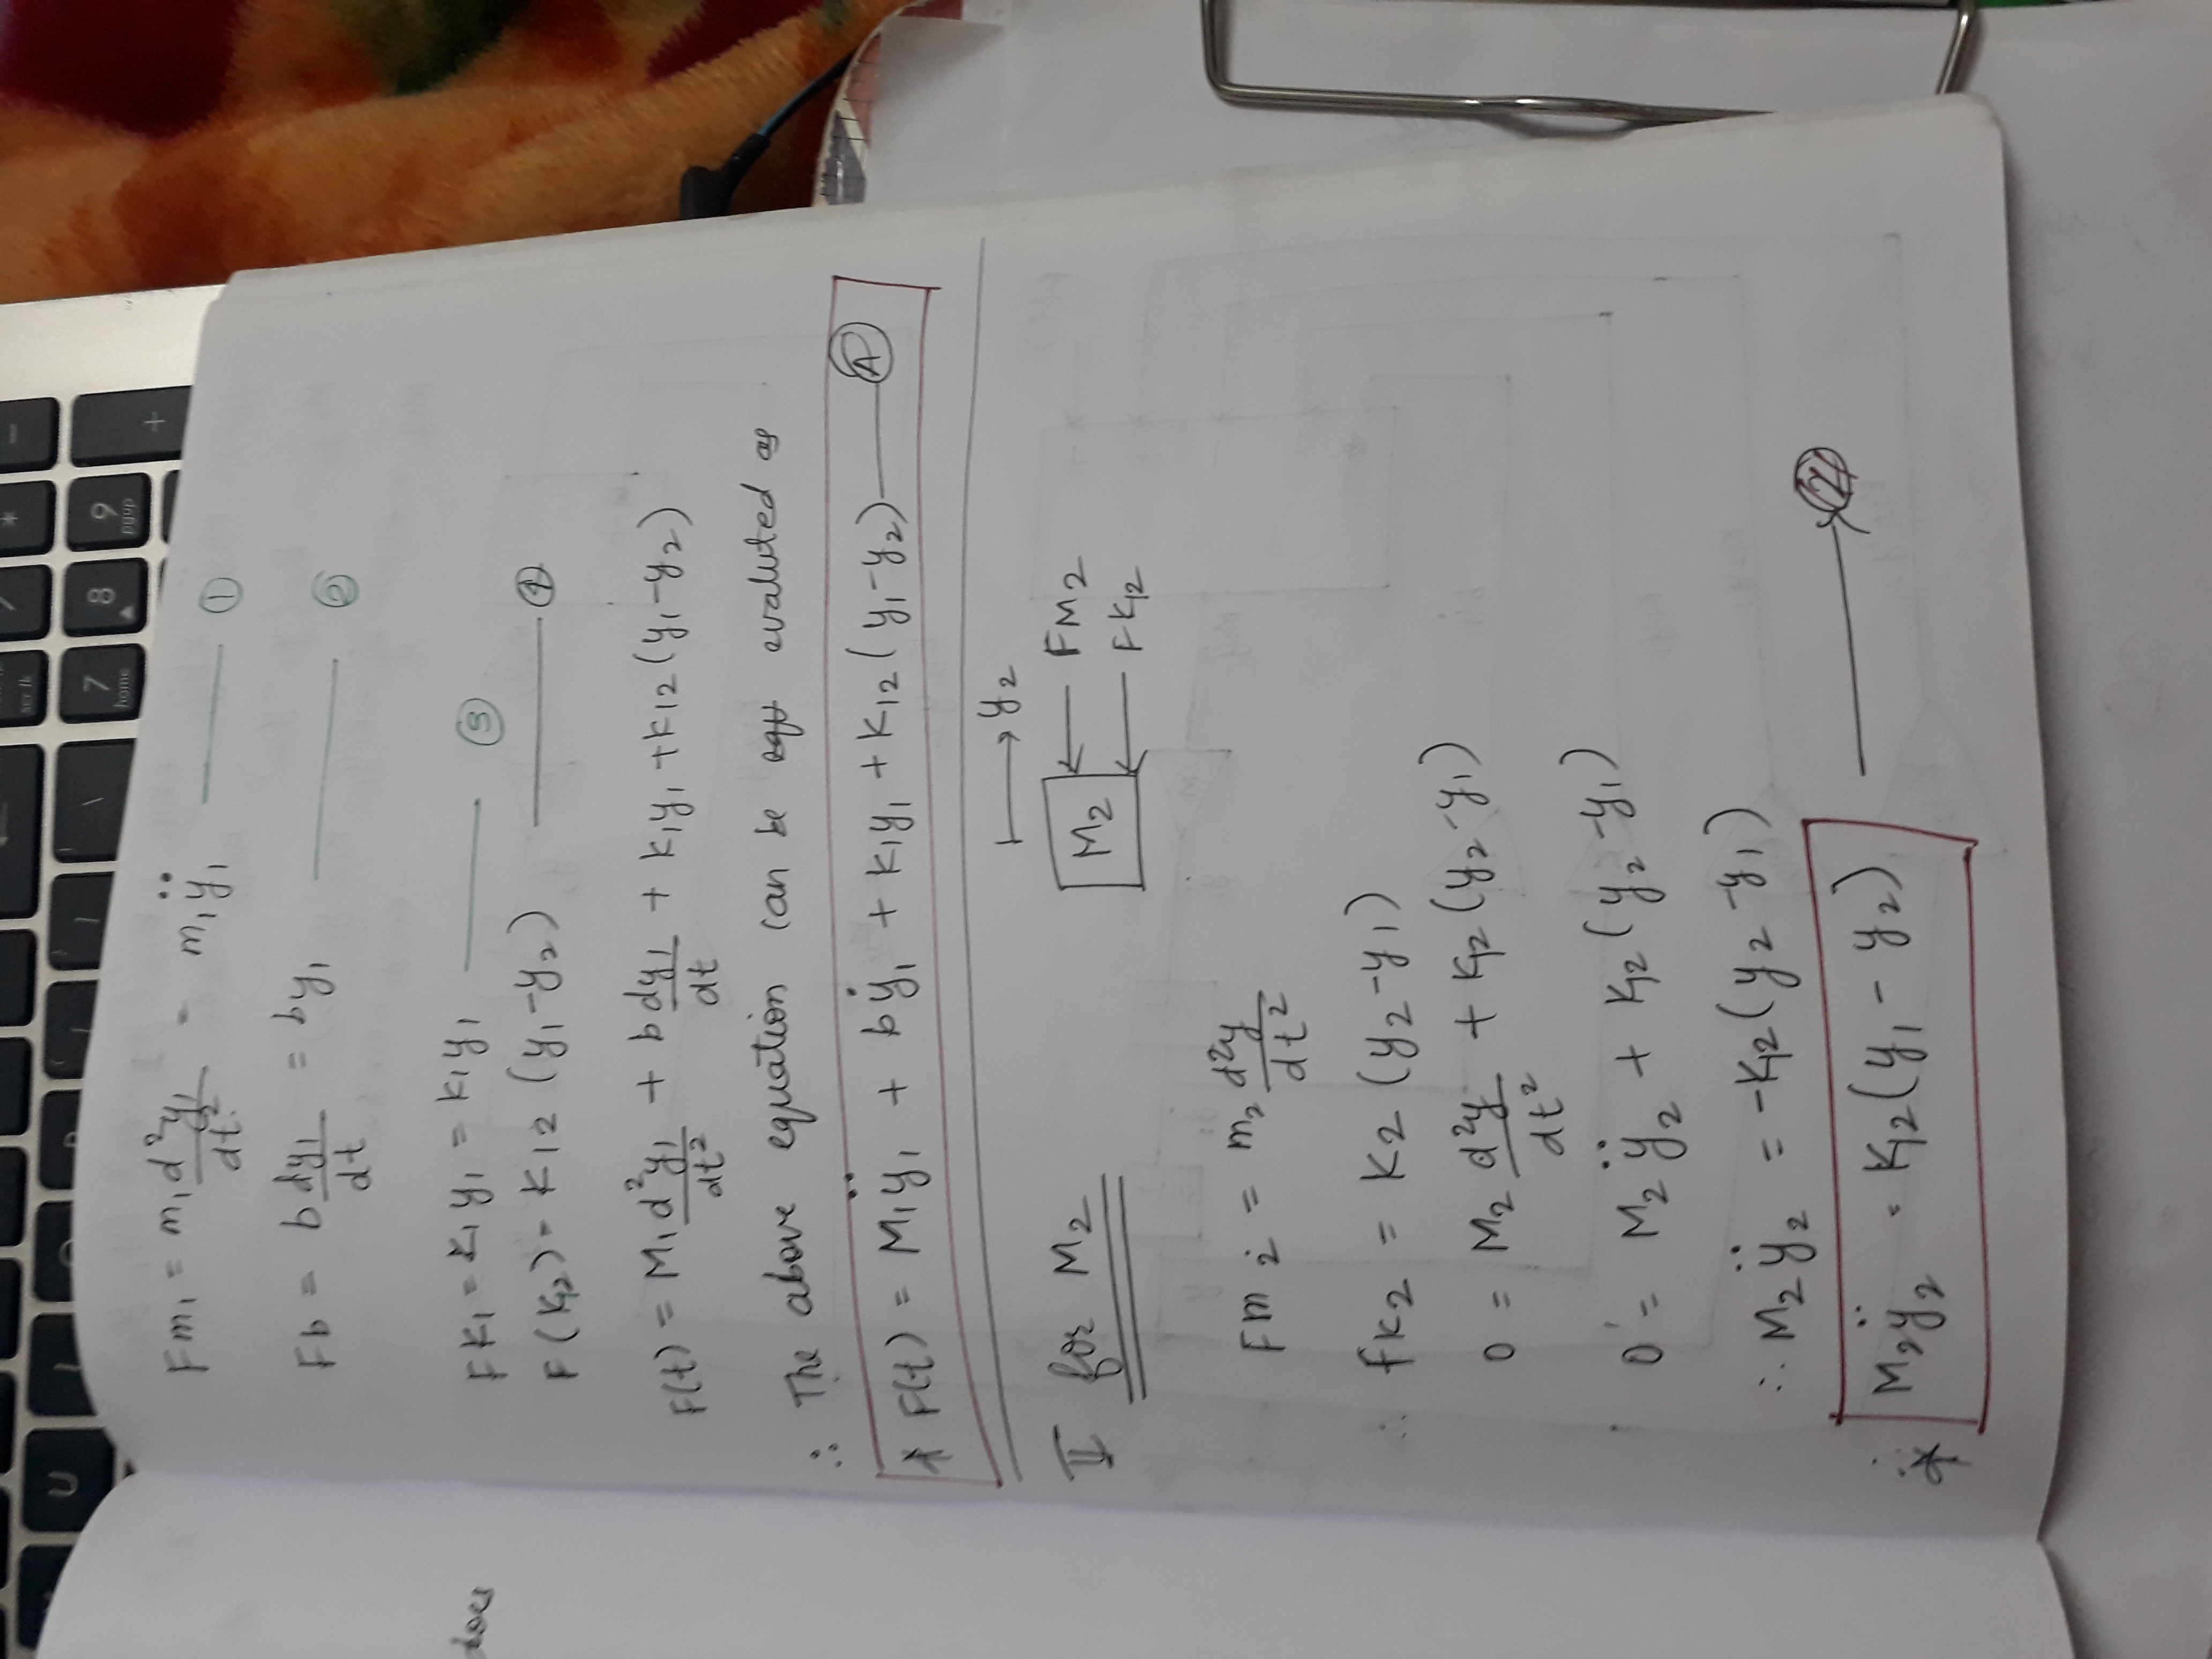 U
7
home
8
9
pgup
+
*
-
scr lk
does
Fm₁ = m₁ d²y₁/dt² = m₁ÿ₁ —— ①
Fb = b dy₁/dt = by₁ —— ②
FK₁ = K₁y₁ = K₁y₁ —— ③
F(K₁₂) = K12 (y₁-y₂) —— ④
F(t) = M₁ d²y₁/dt² + b dy₁/dt + K₁y₁ + K12 (y₁-y₂)
∴ The above equation can be evaluted as
* F(t) = M₁ÿ₁ + bẏ₁ + K₁y₁ + K12 (y₁-y₂) —— Ⓐ
y₂
II for M₂
M₂
FM₂
FK₁₂
Fm 2 = m₂ d²y/dt²
∴ fK₂ = K₂ (y₂-y₁)
0 = M₂ d²y/dt² + K₁₂ (y₂-y₁)
0 = M₂ÿ₂ + K₁₂ (y₂-y₁)
∴ M₂ÿ₂ = -K₁₂ (y₂-y₁)
∴ * M₂ÿ₂ = K₁₂ (y₁-y₂) ⟶